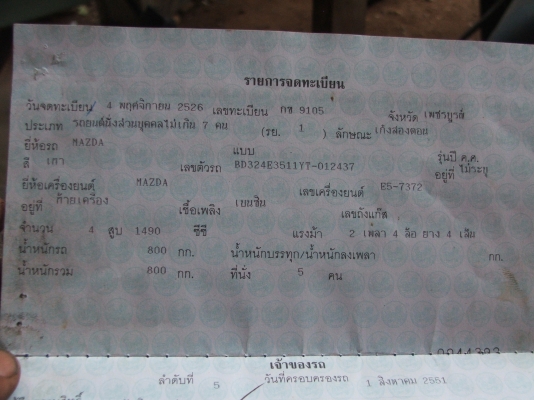 รายการจดทะเบียน
วันจดทะเบียน 4 พฤศจิกายน 2526 เลขทะเบียน กข 9105 จังหวัด เพชรบูรณ์
ประเภท รถยนต์นั่งส่วนบุคคลไม่เกิน 7 คน (รย. 1 ) ลักษณะ เก๋งสองตอน
ยี่ห้อรถ MAZDA แบบ รุ่นปี ค.ศ. ไม่ระบุ
สี เทา เลขตัวรถ BD324E3511YT-012437 อยู่ที่
ยี่ห้อเครื่องยนต์ MAZDA เลขเครื่องยนต์ E5-7372
อยู่ที่ ซ้ายเครื่อง เชื้อเพลิง เบนซิน เลขถังแก๊ส
จำนวน 4 สูบ 1490 ซีซี แรงม้า 2 เพลา 4 ล้อ ยาง 4 เส้น
น้ำหนักรถ 800 กก. น้ำหนักบรรทุก/น้ำหนักลงเพลา กก.
น้ำหนักรวม 800 กก. ที่นั่ง 5 คน
เจ้าของรถ
ลำดับที่ 5 วันที่ครอบครองรถ 1 สิงหาคม 2551